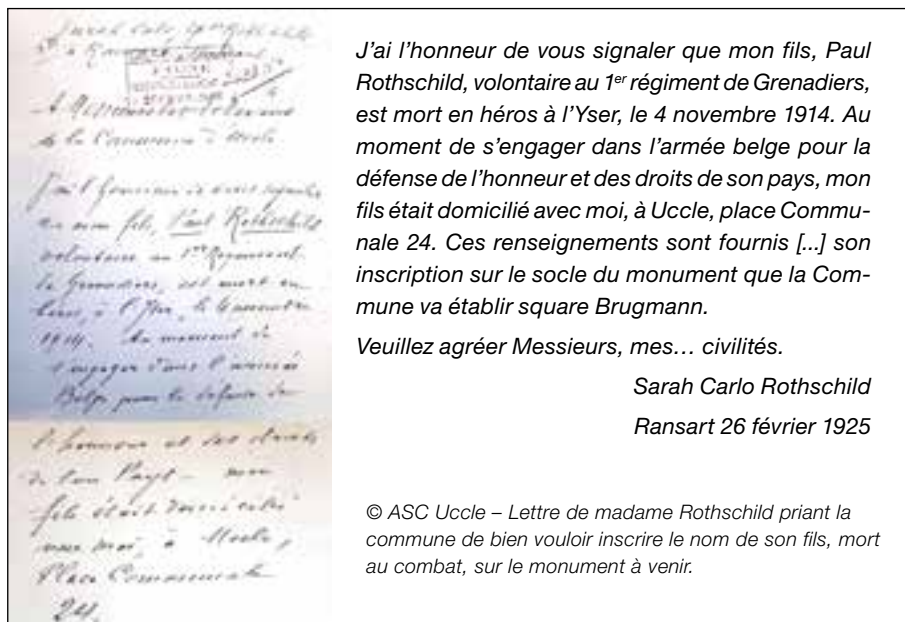 de la Commune d'Uccle.
J'ai l'honneur de vous signaler
que mon fils, Paul Rothschild
volontaire au 1er Régiment
de Grenadiers, est mort en
héros, à l'Yser, le 4 novembre
1914. Au moment de
s'engager dans l'armée
Belge pour la défense de
l'honneur et des droits
de son Pays – mon
fils était domicilié
avec moi, à Uccle,
Place Communale
24.
J'ai l'honneur de vous signaler que mon fils, Paul
Rothschild, volontaire au 1er régiment de Grenadiers,
est mort en héros à l'Yser, le 4 novembre 1914. Au
moment de s'engager dans l'armée belge pour la
défense de l'honneur et des droits de son pays, mon
fils était domicilié avec moi, à Uccle, place Commu-
nale 24. Ces renseignements sont fournis [...] son
inscription sur le socle du monument que la Com-
mune va établir square Brugmann.
Veuillez agréer Messieurs, mes… civilités.
Sarah Carlo Rothschild
Ransart 26 février 1925
© ASC Uccle – Lettre de madame Rothschild priant la
commune de bien vouloir inscrire le nom de son fils, mort
au combat, sur le monument à venir.